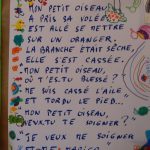 MON PETIT OISEAU
A PRIS SA VOLÉE
EST ALLÉ SE METTRE
SUR UN ORANGER.
LA BRANCHE ÉTAIT SÈCHE,
ELLE S'EST CASSÉE.
MON PETIT OISEAU,
OÙ T'ES-TU BLESSÉ ?
ME SUIS CASSÉ L'AILE
ET TORDU LE PIED...
MON PETIT OISEAU,
VEUX-TU TE SOIGNER ?
"JE VEUX ME SOIGNER